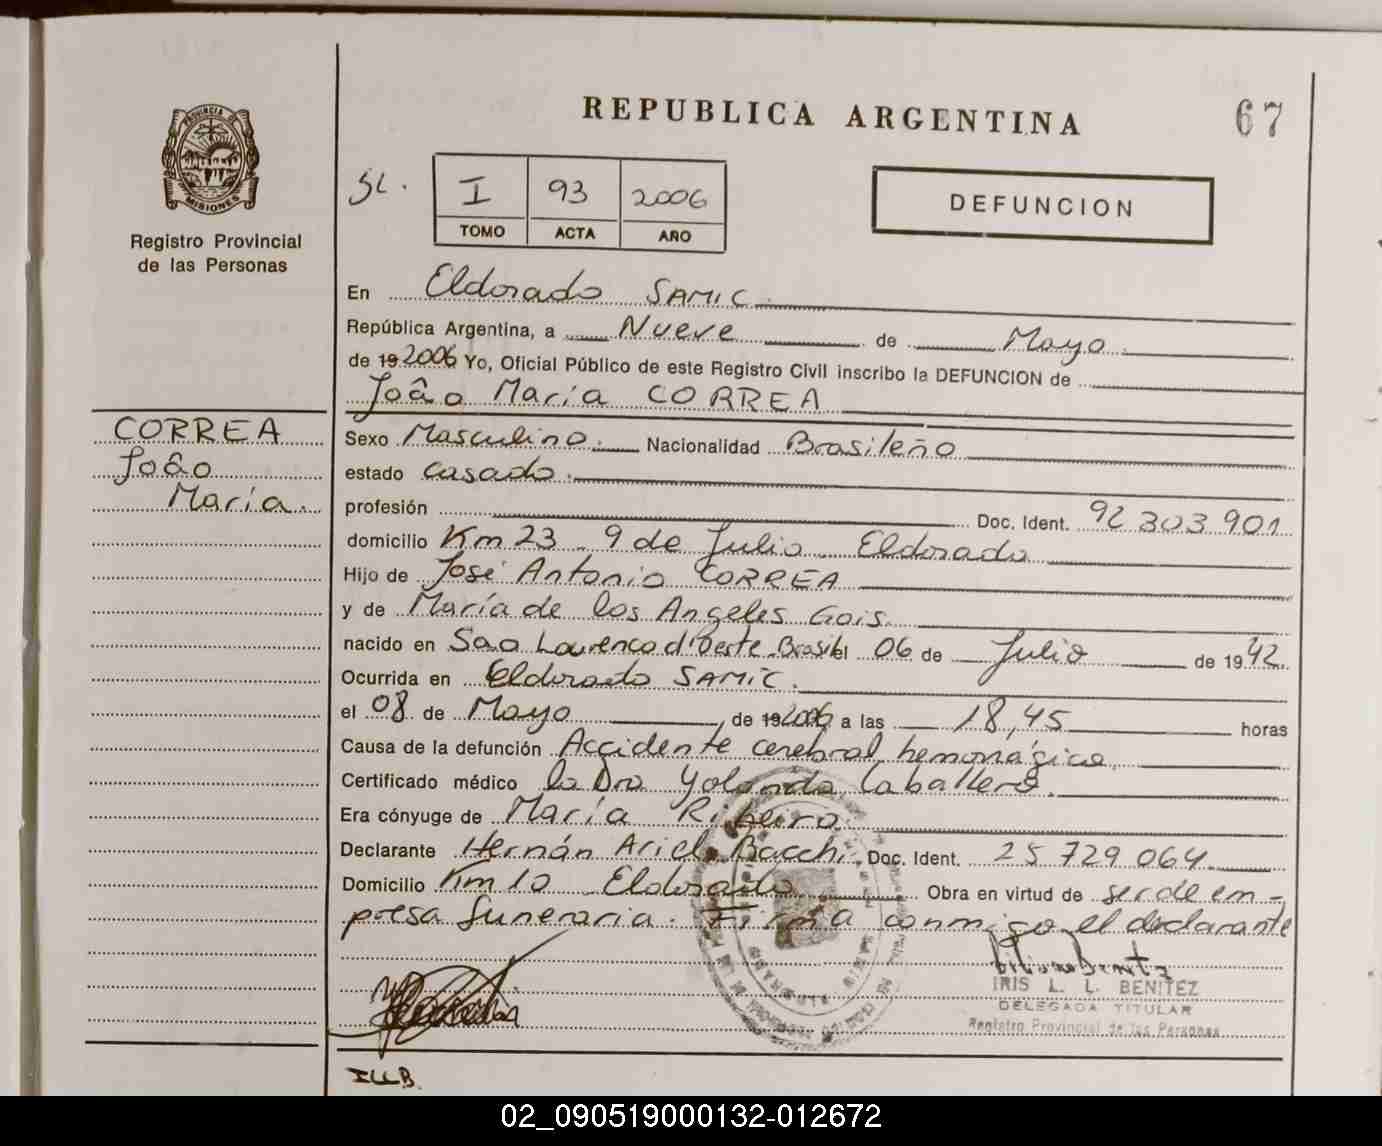 REPUBLICA ARGENTINA
67
PROVINCIA DE
MISIONES
Registro Provincial
de las Personas
I 93 2006
TOMO ACTA AÑO
DEFUNCION
En Eldorado SAMIC.
República Argentina, a Nueve de Mayo
de 19 2006 Yo, Oficial Público de este Registro Civil inscribo la DEFUNCION de
João María CORREA
CORREA
João
María.
Sexo Masculino. Nacionalidad Brasileño
estado casado.
profesión Doc. Ident. 92 303 901
domicilio Km 23 - 9 de Julio - Eldorado
Hijo de José Antonio CORREA
y de María de los Angeles Gois.
nacido en Sao Lourenco d'Oeste - Brasil el 06 de Julio de 19 42.
Ocurrida en Eldorado SAMIC.
el 08 de Mayo, de 19 2006 a las 18,45 horas
Causa de la defunción Accidente cerebral hemorrágico,
Certificado médico la Dra Yolanda Caballero.
Era cónyuge de María Ribeiro
Declarante Hernán Ariel Bacchi, Doc. Ident. 25 729 064
Domicilio Km 10 Eldorado Obra en virtud de ser de em-
presa funeraria. Firma conmigo el declarante
IRIS L. L. BENITEZ
DELEGADA TITULAR
Registro Provincial de las Personas
ILLB.
02_090519000132-012672